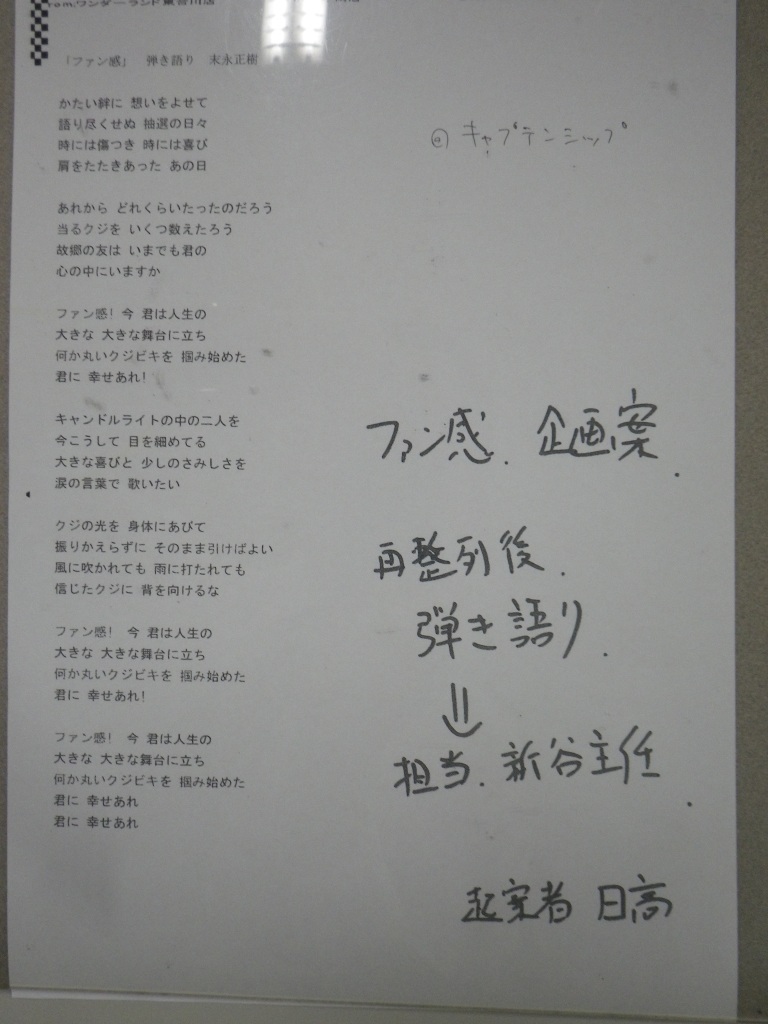 「ファン感」 弾き語り 末永正樹
かたい絆に 想いをよせて
語り尽くせぬ 抽選の日々
時には傷つき 時には喜び
肩をたたきあった あの日
あれから どれくらいたったのだろう
当るクジを いくつ数えたろう
故郷の友は いまでも君の
心の中にいますか
ファン感! 今 君は人生の
大きな 大きな舞台に立ち
何か丸いクジビキを 掴み始めた
君に 幸せあれ!
キャンドルライトの中の二人を
今こうして 目を細めてる
大きな喜びと 少しのさみしさを
涙の言葉で 歌いたい
クジの光を 身体にあびて
振りかえらずに そのまま引けばよい
風に吹かれても 雨に打たれても
信じたクジに 背を向けるな
ファン感! 今 君は人生の
大きな 大きな舞台に立ち
何か丸いクジビキを 掴み始めた
君に 幸せあれ!
ファン感! 今 君は人生の
大きな 大きな舞台に立ち
何か丸いクジビキを 掴み始めた
君に 幸せあれ
君に 幸せあれ
キャプテンシップ
ファン感. 企画案.
再整列後.
弾き語り.
⇓
担当. 新谷主任.
起案者 日高